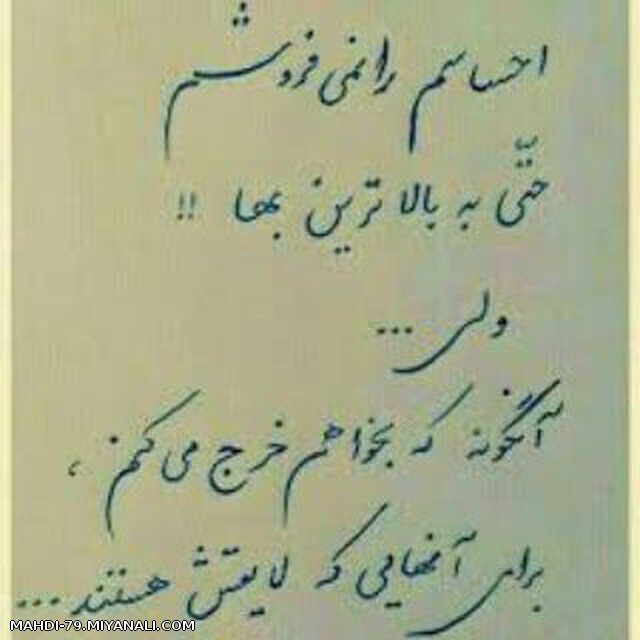 احساسم را نمی فروشم
حتّی به بالاترین بها !!
ولی...
آنگونه که بخواهم خرج می کنم ،
برای آنهایی که لایقش هستند...
MAHDI-79.MIYANALI.COM